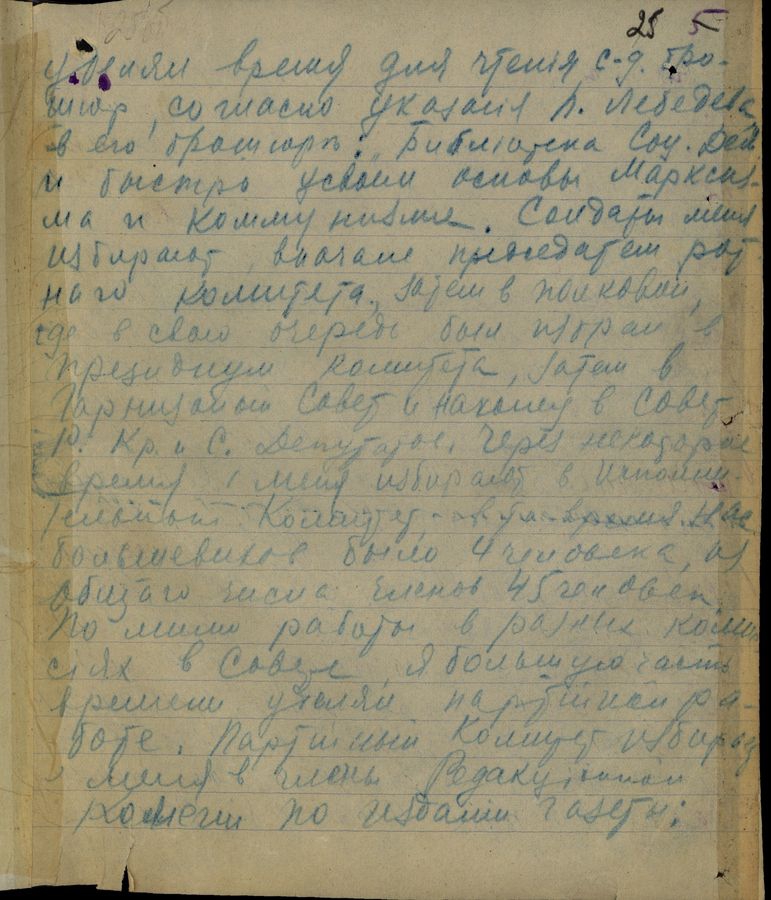 25 5
уделял время для чтенія с-д. бро-
шюр, согласно указанія П. Лебедева
в его брошюрѣ: „Библіотека Соц. Дем
и быстро усвоил основы Марксиз-
ма и Коммунизма. Солдаты меня
избирают, вначале председателем рот-
наго комитета, затем в полковой,
где в свою очередь был избран в
президиум комитета, затем в
Гарнизонный Совет и наконец в Совет
Р. Кр. и С. Депутатов. Через некоторое
время, меня избирают в Исполни-
тельный Комитет в то время нас
большевиков было 4 человека, из
общаго числа членов 45 человек.
По мимо работы в разных комис
сіях в Совете, я большую часть
времени уделял партійной ра-
боте. Партийный Комитет избирает
меня в члены Редакціонной
Колегии по изданию газеты: